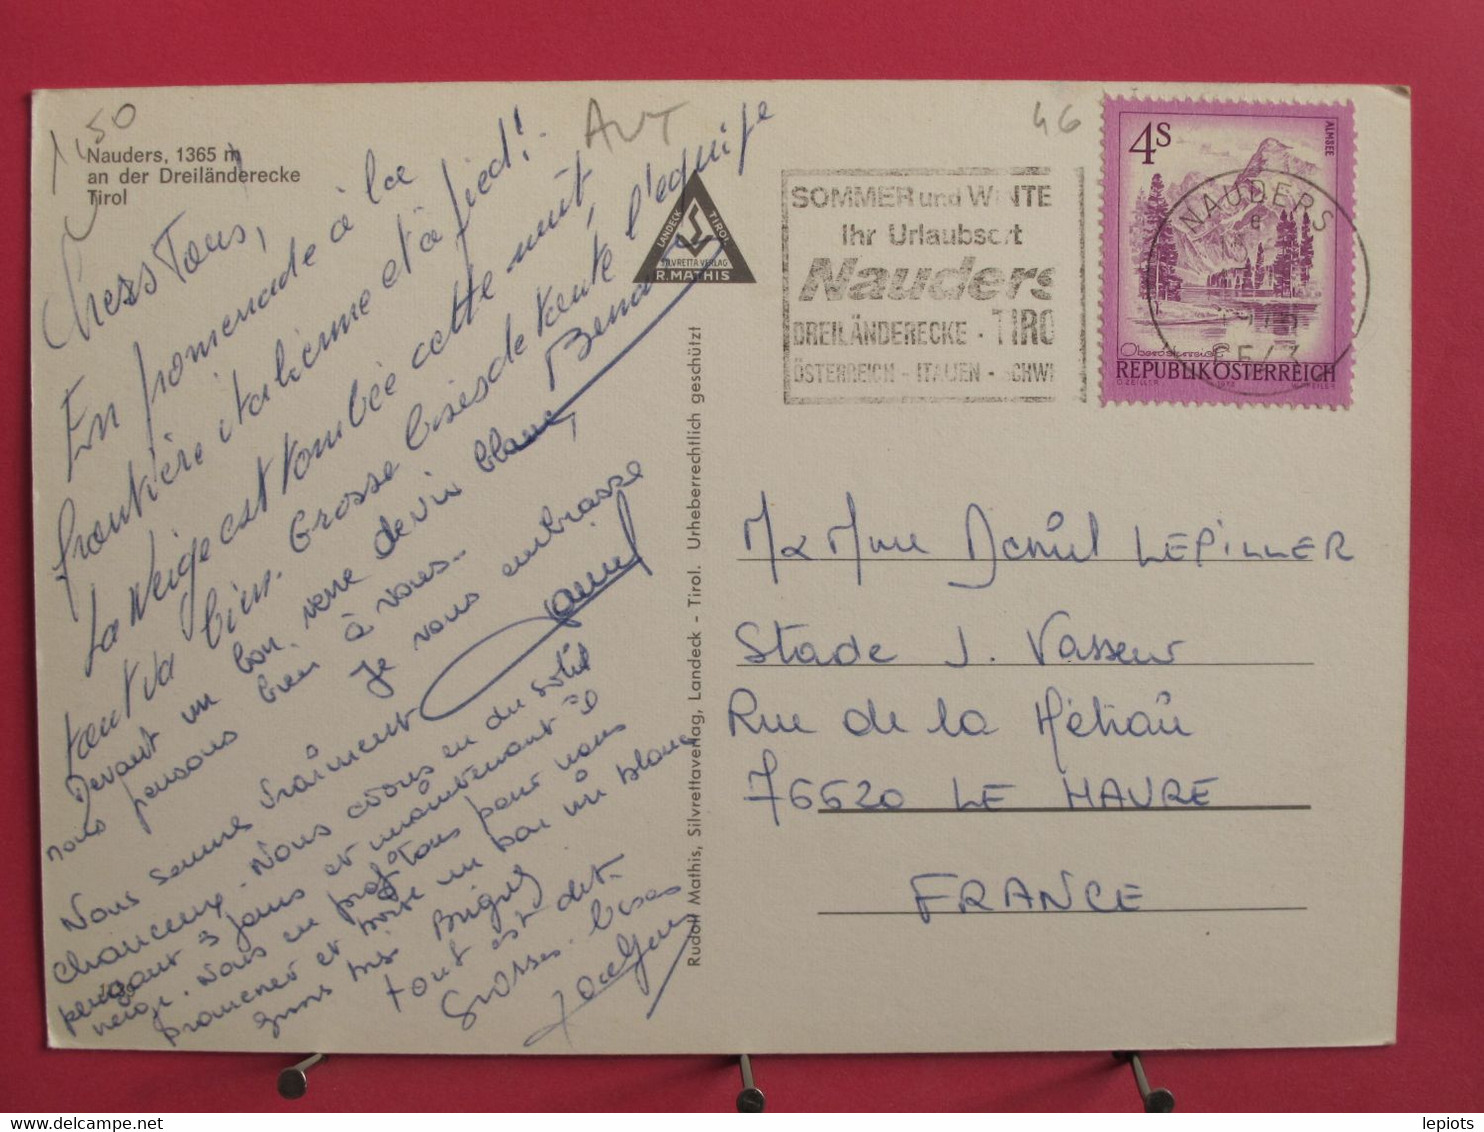 1,50
AUT
46
Nauders, 1365 m
an der Dreiländerecke
Tirol
Chers Tous,
En promenade à la
frontière italienne et à pied!
La neige est tombée cette nuit
tout va bien. Grosse bises de toute l'équipe
Devant un bon verre de vin blanc,
nous pensons bien à vous.
je vous embrasse
Nous sommes vraiment
chanceux. Nous avons eu du soleil
pendant 3 jours et maintenant il
neige. Nous en profitons pour nous
promener et boire un bon vin blanc
tout est dit.
Grosses bises
Jocelyne
LANDECK TIROL
SILVRETTA VERLAG
R. MATHIS
Rudolf Mathis, Silvrettaverlag, Landeck - Tirol. Urheberrechtlich geschützt
SOMMER und WINTE
Ihr Urlaubsort
Nauders
DREILÄNDERECKE - TIRO
ÖSTERREICH - ITALIEN - SCHWE
4S
ALMSEE
Oberösterreich
REPUBLIK ÖSTERREICH
NAUDERS
6543
M & Mme Daniel LEPILLER
Stade J. Vasseur
Rue de la
76620 LE HAVRE
FRANCE
lepiots